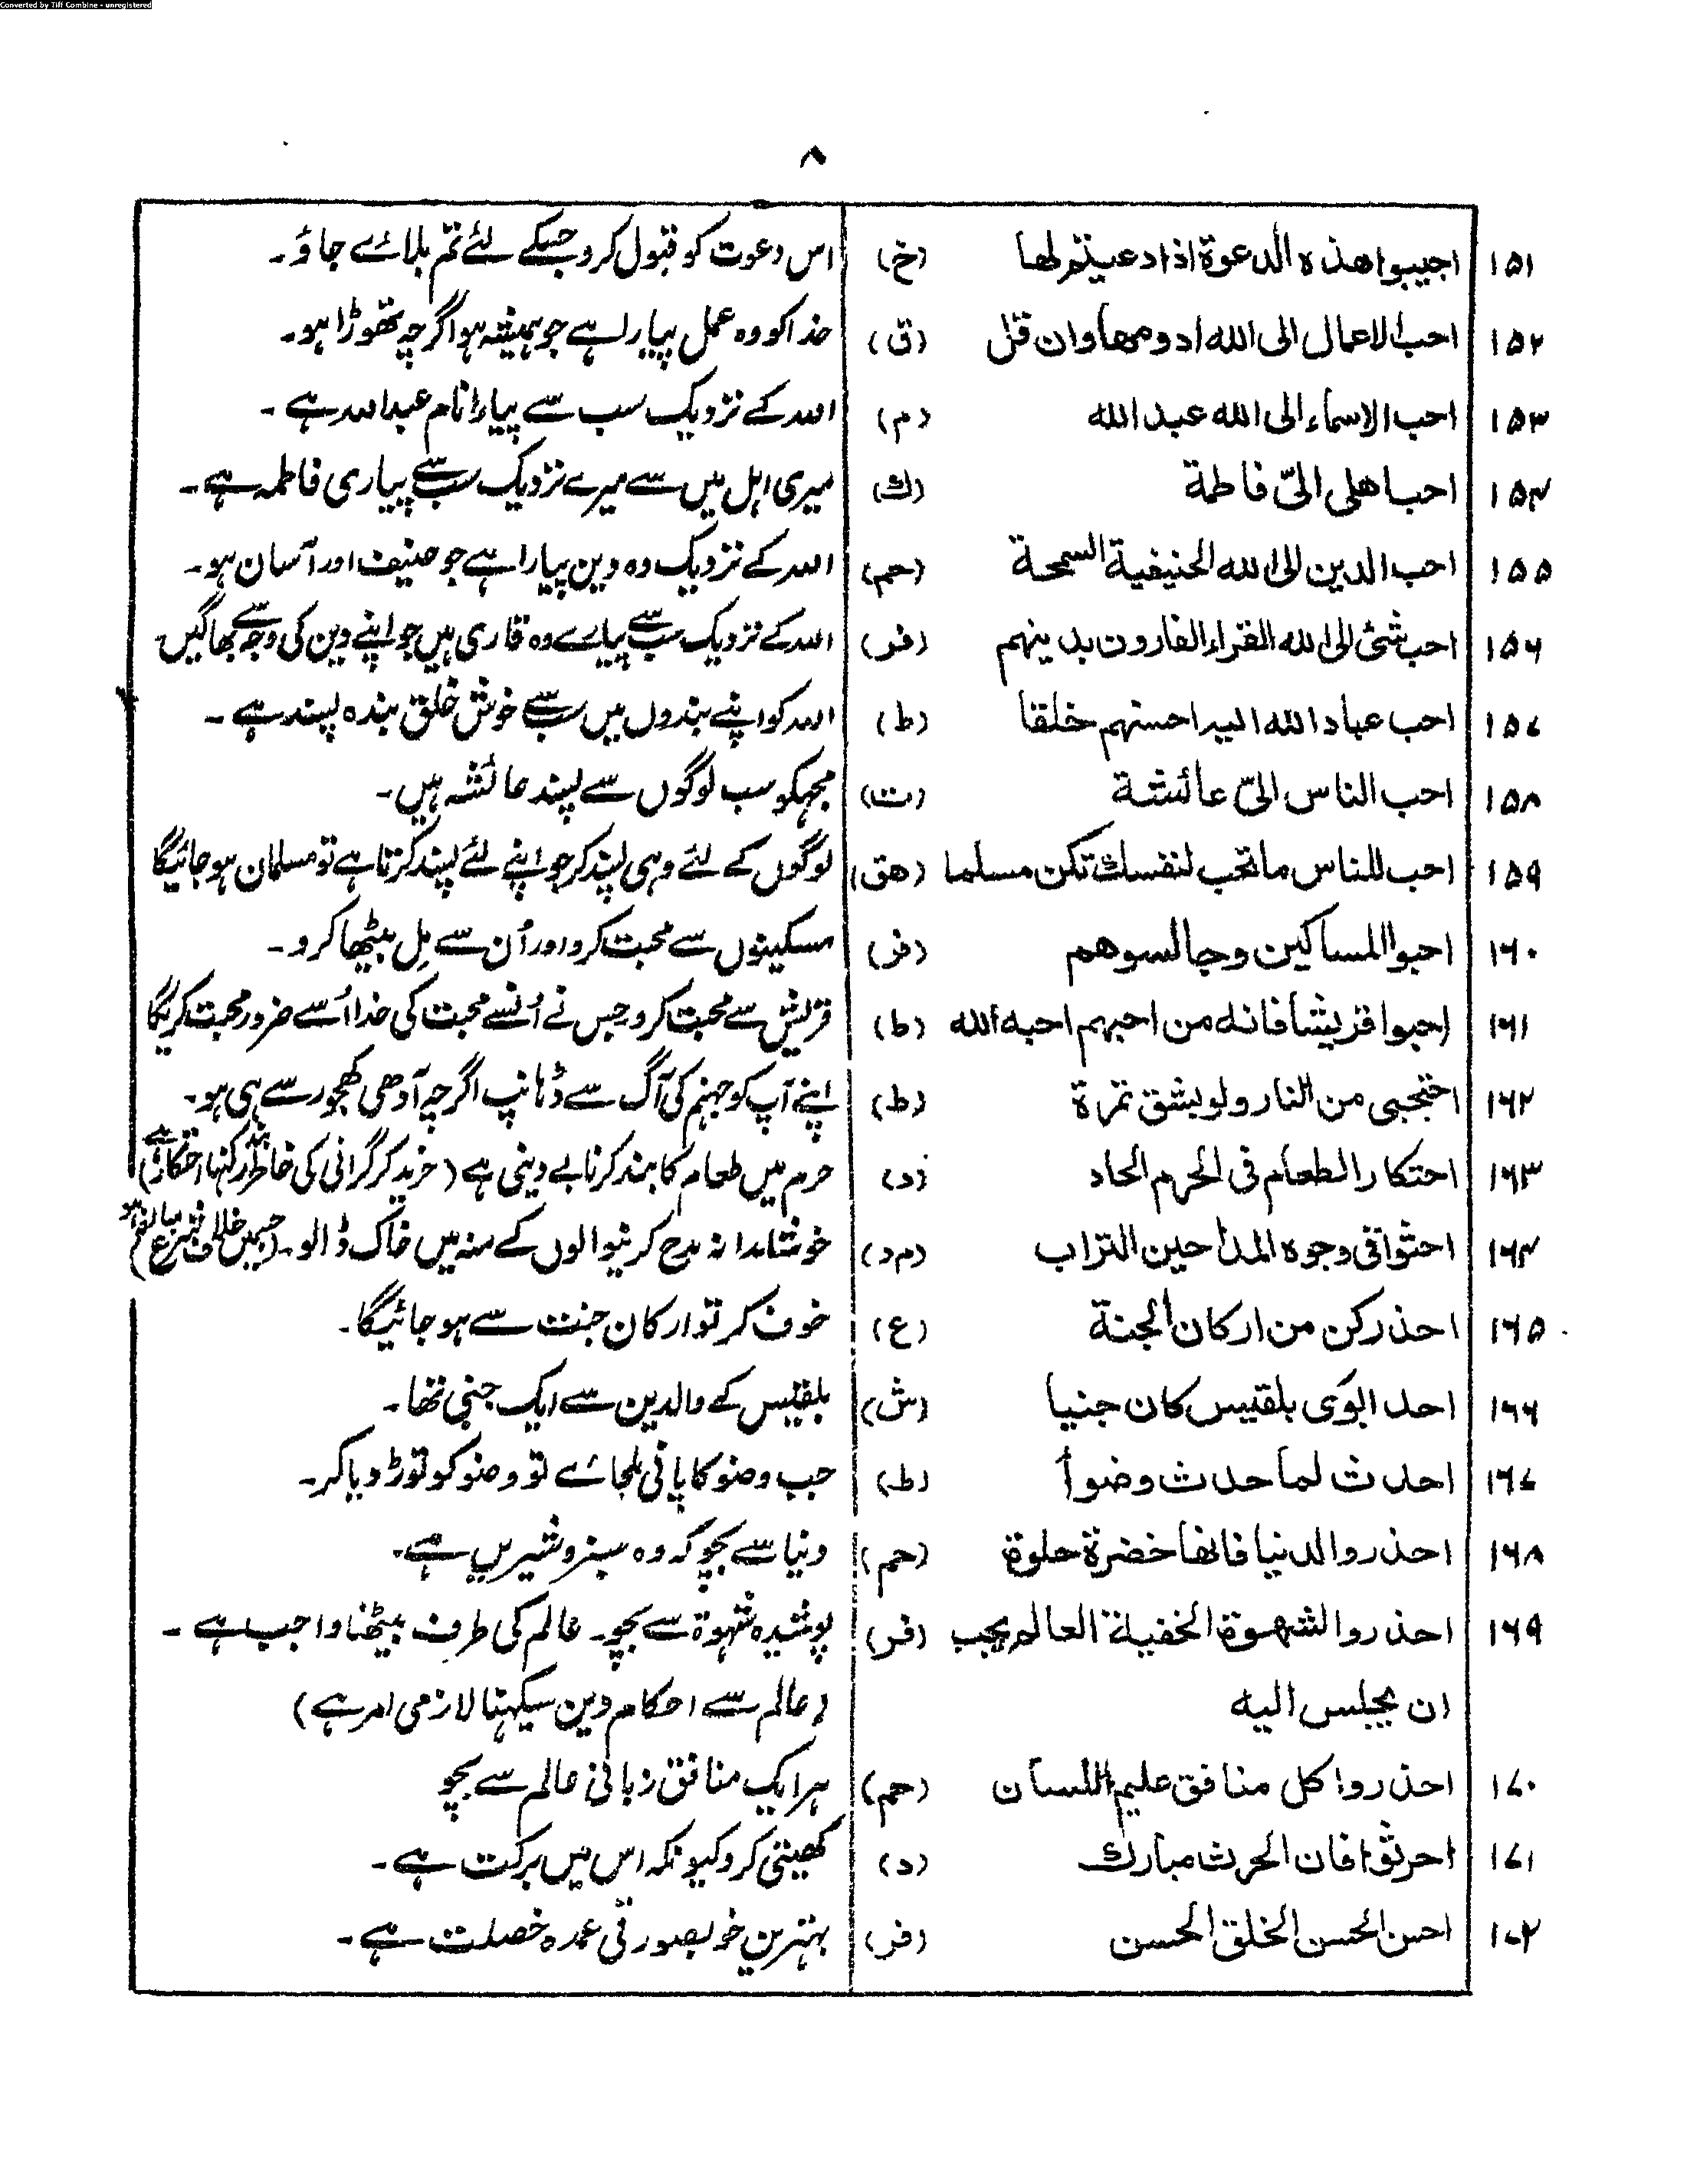 Converted by Tiff Combine - unregistered
۸
۱۵۱ اجیبوا هذه الدعوة اذا دعیتم لها (خ) اس دعوت کو قبول کرو جسکے لئے تم بلائے جاؤ۔
۱۵۲ احب الاعمال الی الله ادومها وان قل (ق) خدا کو وہ عمل پیارا ہے جو ہمیشہ ہو اگرچہ تھوڑا ہو۔
۱۵۳ احب الاسماء الی الله عبد الله (م) اللہ کے نزدیک سب سے پیارا نام عبداللہ ہے۔
۱۵۴ احب اهلی الیّ فاطمة (ك) میری اہل میں سے میرے نزدیک سب سے پیاری فاطمہ ہے۔
۱۵۵ احب الدین الی الله الحنیفیة السمحة (حم) اللہ کے نزدیک وہ دین پیارا ہے جو حنیف اور آسان ہو۔
۱۵۶ احب شئ الی الله القراء الفارون بدینهم (فر) اللہ کے نزدیک سب سے پیارے وہ قاری ہیں جو اپنے دین کی وجہ سے بھاگیں
۱۵۷ احب عباد الله الیه احسنهم خلقا (ط) اللہ کو اپنے بندوں میں سب سے خوش خلق بندہ پسند ہے۔
۱۵۸ احب الناس الیّ عائشة (ت) مجہکو سب لوگوں سے پسند عائشہ ہیں۔
۱۵۹ احب للناس ما تحب لنفسك تکن مسلما (هق) لوگوں کے لئے وہی پسند کر جو اپنے لئے پسند کرتا ہے تو مسلمان ہو جائیگا
۱۶۰ احبوا المساکین وجالسوهم (فر) مسکینوں سے محبت کرو اور اُن سے مِل بیٹھا کرو۔
۱۶۱ احبوا قریشا فانه من احبهم احبه الله (ط) قریش سے محبت کرو جس نے اُنسے محبت کی خدا اُسے ضرور محبت کریگا
۱۶۲ احتجبی من النار ولو بشق تمرة (ط) اپنے آپ کو جہنم کی آگ سے ڈہانپ اگرچہ آدھی کھجور سے ہی ہو۔
۱۶۳ احتکار الطعام فی الحرم الحاد (د) حرم میں طعام کا بند کرنا بے دینی ہے (خرید کر گرانی کی خاطر بند رکہنا احتکار ہے)
۱۶۴ احثوا فی وجوه المداحین التراب (م د) خوشامدانہ مدح کرنیوالوں کے منہ میں خاک ڈالو۔ (جسمیں خلاف شرع مبالغہ ہو)
۱۶۵ احذر کن من ارکان الجنة (ع) خوف کر تو ارکان جنت سے ہو جائیگا۔
۱۶۶ احد ابوَی بلقیس کان جنیا (ش) بلقیس کے والدین سے ایک جنّی تھا۔
۱۶۷ احدث لما حدث وضوأ (ط) جب وضو کا پانی ملجائے تو وضو کو توڑ دیا کر۔
۱۶۸ احذروا الدنیا فانها خضرة حلوة (حم) دنیا سے بچو کہ وہ سبز و شیریں ہے۔
۱۶۹ احذروا الشهوة الخفیة العالم یجب (فر) پوشیدہ شہوۃ سے بچو۔ عالم کی طرف بیٹھنا واجب ہے۔
ان یجلس الیه (عالم سے احکام دین سیکہنا لازمی امر ہے)
۱۷۰ احذروا کل منافق علیم اللسان (حم) ہر ایک منافق زبانی عالم سے بچو
۱۷۱ احرثوا فان الحرث مبارك (د) کھیتی کرو کیونکہ اس میں برکت ہے۔
۱۷۲ احسن الحسن الخلق الحسن (فر) بہترین خوبصورتی عمدہ خصلت ہے۔